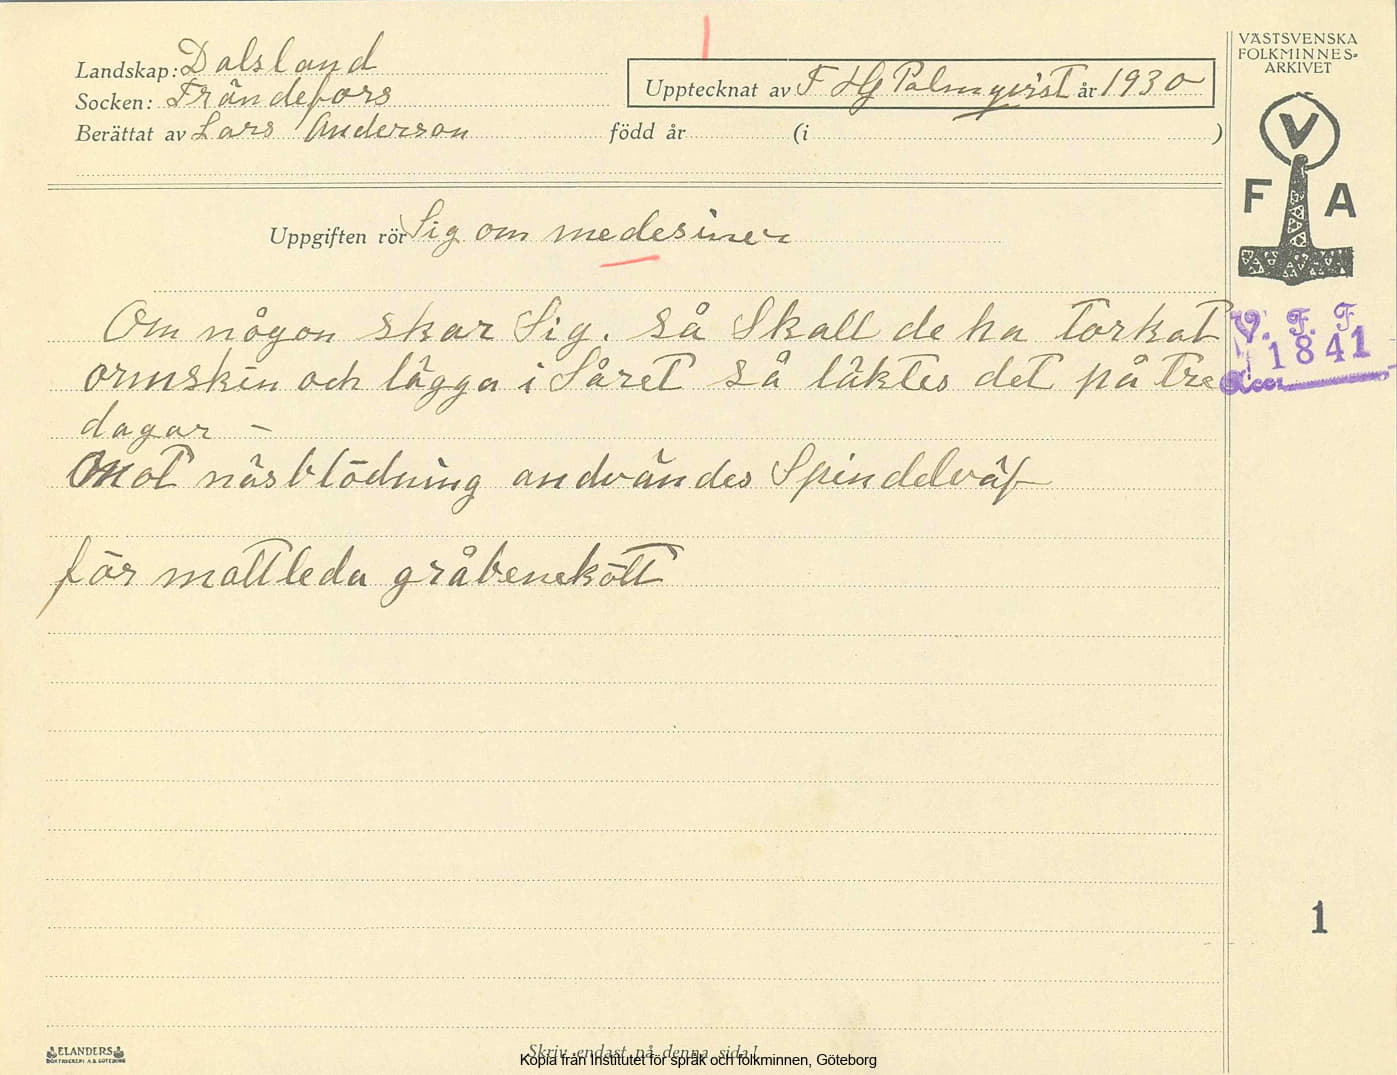 Landskap: Dalsland
Socken: Frändefors
Upptecknat av F HG Palmqvist år 1930
Berättat av Lars Anderson född år (i )
Uppgiften rör Sig om medesiner
Om någon skar Sig. så Skall de ha torkat
ormskin och lägga i Såret så läktes det på tre
dagar –
Mot näsblödning andvändes Spindelväf
för mattleda gråbenekött
VÄSTSVENSKA
FOLKMINNES-
ARKIVET
V
F A
V. F. F.
1841
Acc.
1
ELANDERS
BOKTRYCKERI A.B. GÖTEBORG
Skriv endast på denna sida!
Kopia från Institutet för språk och folkminnen, Göteborg